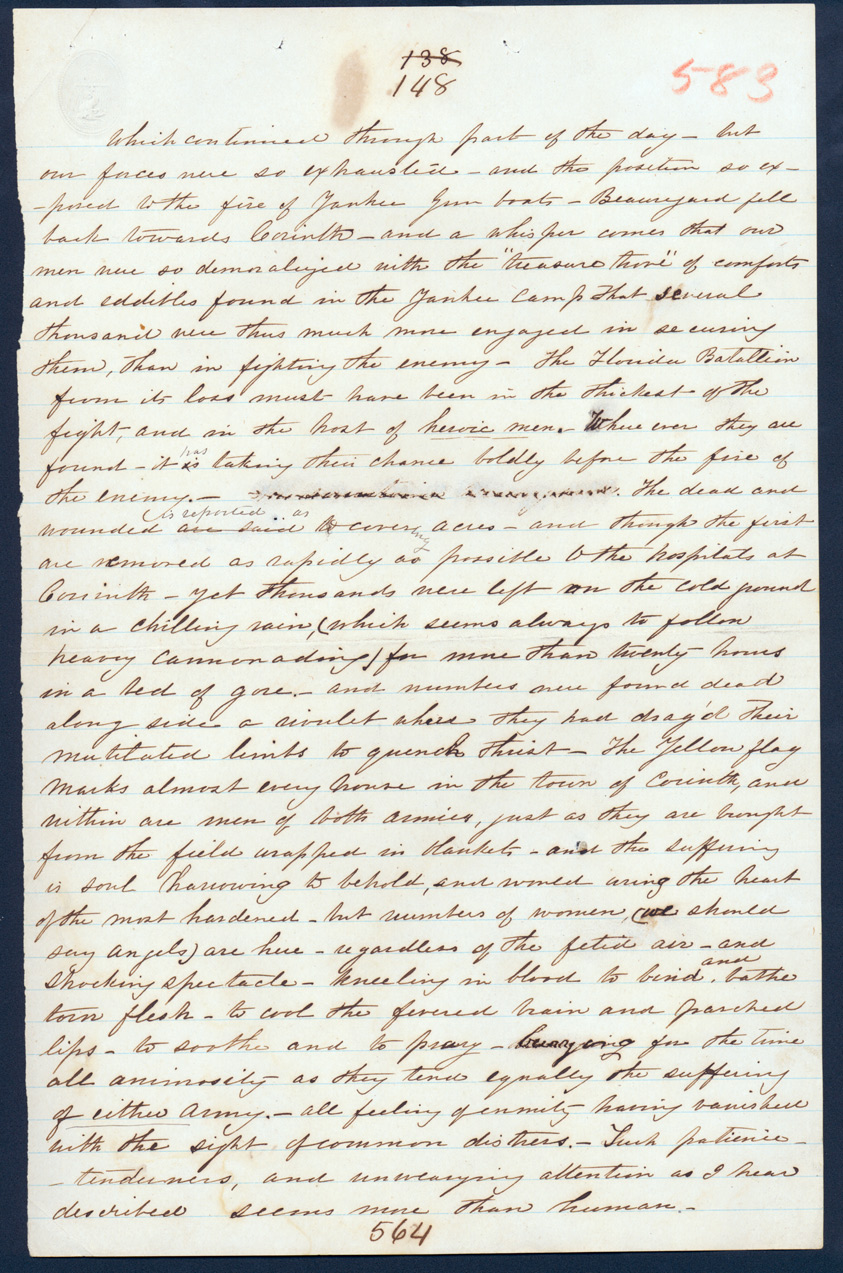 138
148
583
Which continued through part of the day – but
our forces were so exhausted – and the position so ex–
–posed to the fire of Yankee Gun boats – Beauregard fell
back towards Corinth – and a whisper comes that our
men were so demoralized with the "treasure trove" of comforts
and eddibles found in the Yankee Camp that several
thousand were thus much more engaged in securing
them, than in fighting the enemy – The Florida Batallion
from its loss must have been in the thickest of the
fight, and in the host of heroic men. Where ever they are
has
found – it is taking their chance boldly before the fire of
the enemy. – The dead and
is reported as
wounded are said to covering acres – and though the first
are removed as rapidly as possible to the hospitals at
Corinth – yet thousands were left on the cold ground
in a chilling rain, (which seems always to follow
heavy cannonading) for more than twenty hours
in a bed of gore. – and numbers were found dead
along side a rivulet where they had drag'd their
mutilated limbs to quench thirst – The Yellow flag
marks almost every house in the town of Corinth, and
within are men of both armies, just as they are brought
from the field wrapped in blankets – and the suffering
is soul harrowing to behold, and would wring the heart
of the most hardened – but numbers of women, (we should
say angels) are here – regardless of the fetid air – and
and
shocking spectacle – kneeling in blood to bind bathe
torn flesh – to cool the fevered brain and parched
lips – to soothe and to pray – burrying for the time
all animosity as they tend equally the suffering
of either army. – all feeling of enmity having vanished
with the sight of common distress. – Such patience –
– tenderness, and unwearying attention as I hear
described seems more than human. –
564